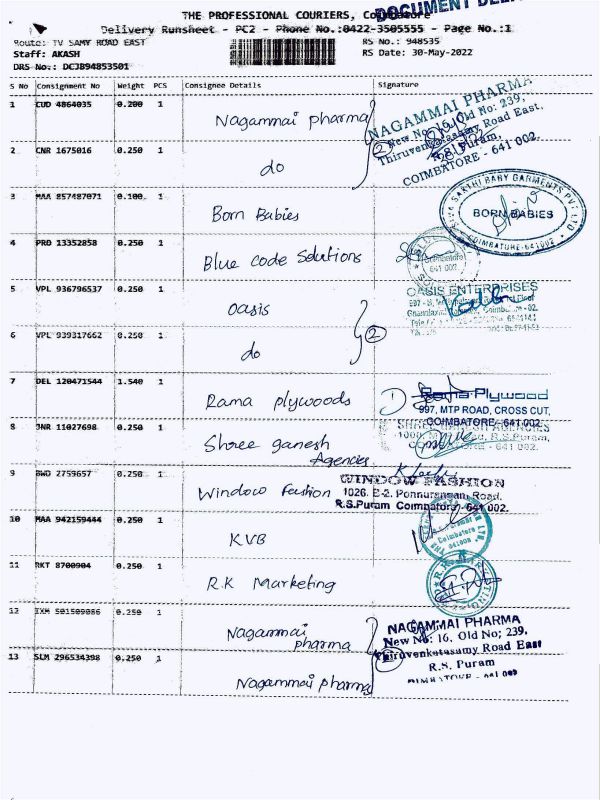 DOCUMENT
THE PROFESSIONAL COURIERS, Coimbatore
Delivery Runsheet - PC2 - Phone No.:0422-3505555 - Page No.:1
Route: TV SAMY ROAD EAST
RS No.: 948535
Staff: AKASH
RS Date: 30-May-2022
DRS No.: DCJB94853501
S No Consignment No Weight PCS Consignee Details Signature
1 CUD 4864035 0.200 1 Nagammai pharma
NAGAMMAI PHARMA
New No: 16, Old No: 239,
Thiruvenkatasamy Road East,
R.S. Puram,
COIMBATORE - 641 002.
2 CNR 1675016 0.250 1 do
2
3 MAA 857487071 0.100 1 Born Babies
SHIVA SAKTHI BABY GARMENTS PVT LTD
BORN BABIES
COIMBATORE-641002
4 PRD 13352858 0.250 1 Blue code Solutions
641 002
5 VPL 936796537 0.250 1 oasis
OASIS ENTERPRISES
6 VPL 939317662 0.250 1 do
2
7 DEL 120471544 1.540 1 Rama plywoods
Rama Plywood
997, MTP ROAD, CROSS CUT,
COIMBATORE - 641 002.
8 JNR 11027698 0.250 1 Shree ganesh
Agencies
SHREE GANESH AGENCIES
R.S.Puram,
COIMBATORE - 641 002.
9 BWD 2759657 0.250 1 Window Fashion
WINDOW FASHION
1026, E-2, Ponnurangan Road,
R.S.Puram Coimbatore - 641 002.
10 MAA 942159444 0.250 1 KVB
Coimbatore
641002
11 RKT 8700904 0.250 1 R.K Marketing
12 IXM 501509086 0.250 1 Nagammai
pharma
NAGAMMAI PHARMA
New No: 16, Old No; 239,
Thiruvenkatasamy Road East
R.S. Puram
13 SLM 296534398 0.250 1 Nagammai pharma
2